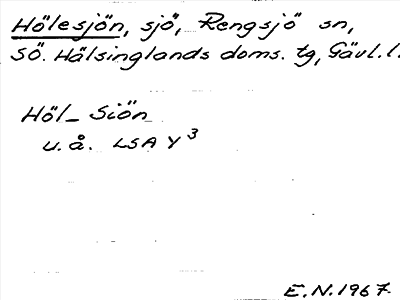 Hölesjön, sjö, Rengsjö sn,
SÖ. Hälsinglands doms. tg, Gävl. l.
Höl_ Siön
u. å. LSA Y³
E.N. 1967